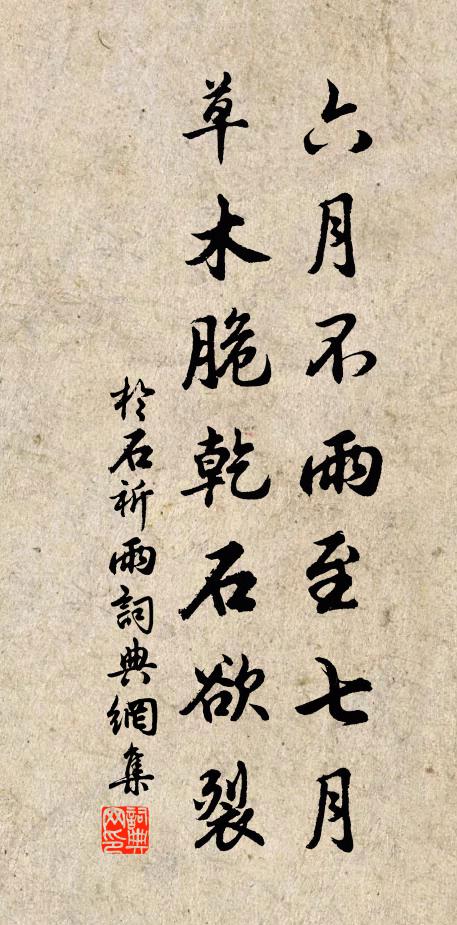 六月不雨至七月
草木脆乾石欲裂
於石祈雨詞典網集
詞典網印